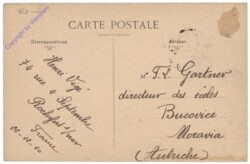 CARTE POSTALE
Correspondance
Adresse
Henri Vigé
74 rue 4 Septembre
Rochefort s/mer
France
Mr F. L. Gartner
directeur des écoles
Bucovice
Moravia
(Autriche)